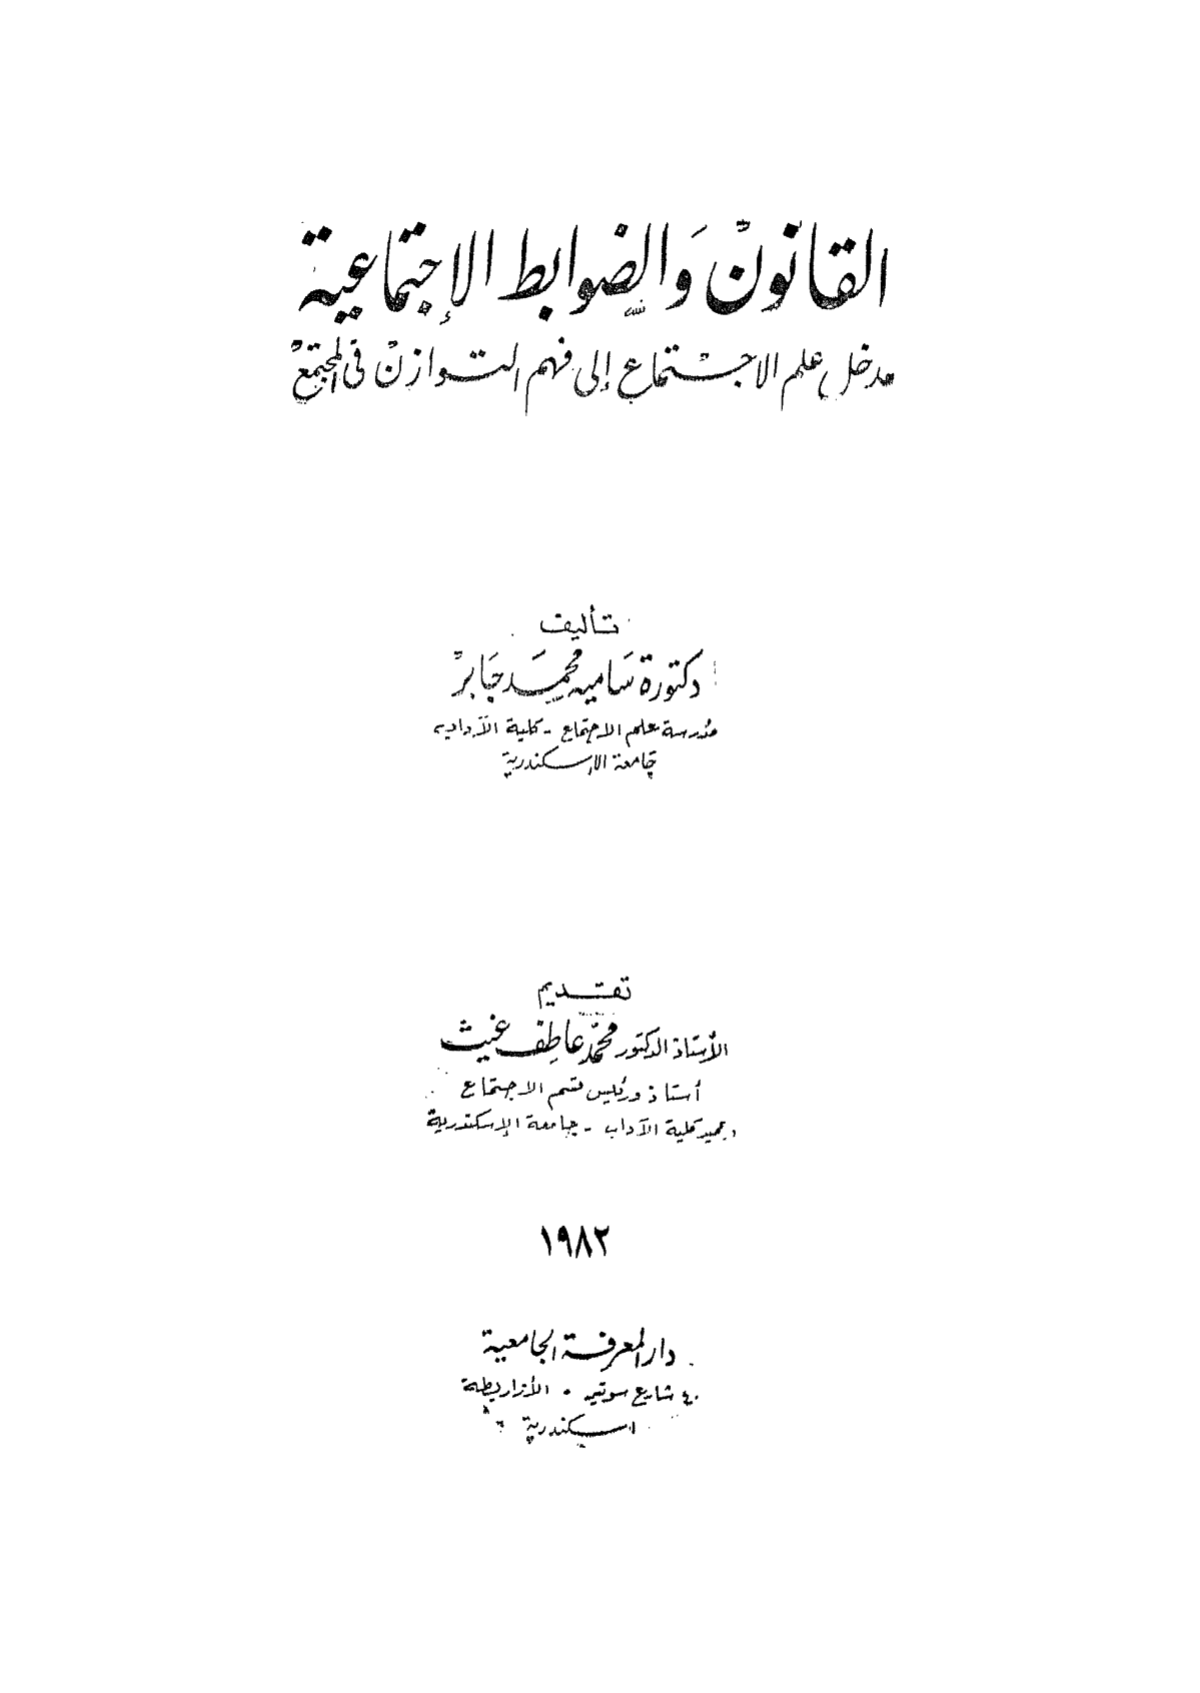 القانون والضوابط الإجتماعية
مدخل علم الاجتماع إلى فهم التوازن فى المجتمع
تأليف
دكتورة سامية محمد جابر
مدرسة علم الاجتماع - كلية الآداب
جامعة الإسكندرية
تقديم
الأستاذ الدكتور محمد عاطف غيث
أستاذ ورئيس قسم الاجتماع
وعميد كلية الآداب - جامعة الإسكندرية
١٩٨٢
دار المعرفة الجامعية
٤٠ شارع سوتير . الأزاريطة
اسكندرية